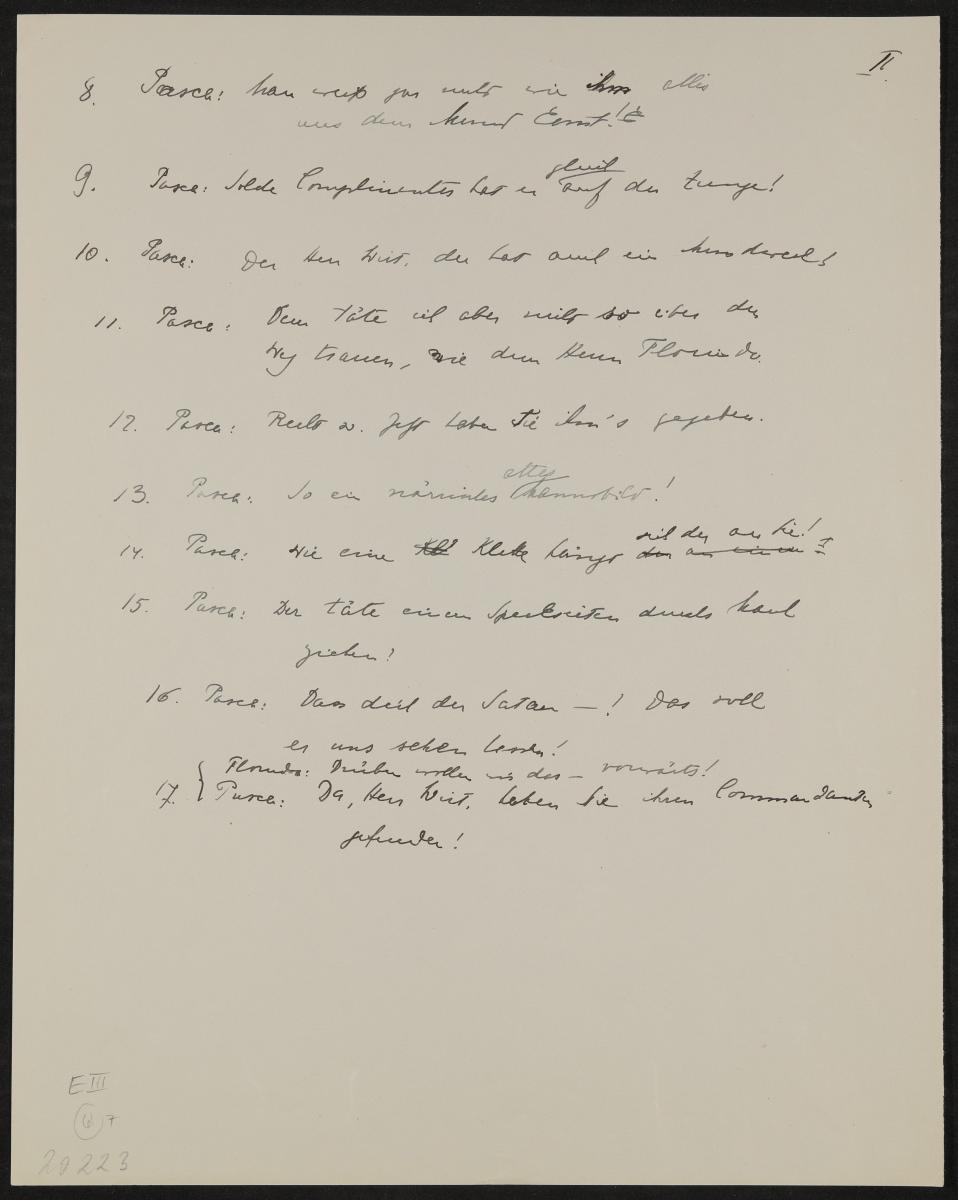 II.
8. Pasca: Man weiß gar nicht wie ihm alles
aus dem Mund kommt!
9. Pasca: Solche Complimentes hat er gleich auf der Zunge!
10. Pasca: Der Herr Wirt, der hat auch ein Mundwerk!
11. Pasca: Dem täte ich aber nicht so über den
Weg trauen, wie dem Herrn Florindo.
12. Pasca: Recht so. Jetzt haben Sie ihm's gegeben.
13. Pasca: So ein närrisches altes Mannsbild!
14. Pasca: Wie eine Klette hängt sich der an Sie!
15. Pasca: Der täte einem Speckseiten durchs Maul
ziehen!
16. Pasca: Dass dich der Satan —! Das soll
er uns sehen lassen!
Florindo: Drüber wollen wir das — vorwärts!
17. Pasca: Da, Herr Wirt, haben Sie ihren Commandanten
gefunden!
E III
6 7
20223